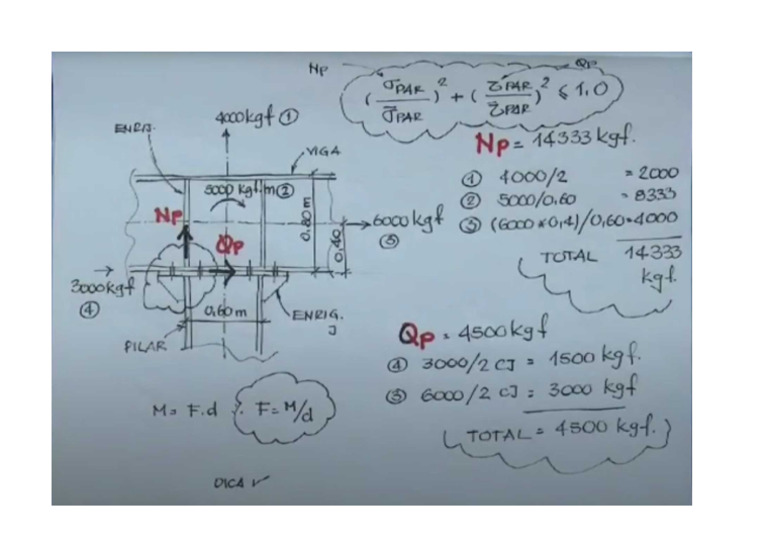 Np
Qp
(σPAR / σ̄PAR)² + (τPAR / τ̄PAR)² ≤ 1,0
4000kgf ①
ENRIJ.
VIGA
5000 kgf.m ②
Np
Qp
0,80m
0,40
6000kgf
③
3000kgf
④
0,60m
ENRIG.
J
PILAR
M= F.d ∴ F= M/d
DICA ✓
Np = 14333 kgf.
① 4000/2 = 2000
② 5000/0,60 = 8333
③ (6000x0,4)/0,60=4000
TOTAL 14333
kgf.
Qp = 4500kgf
④ 3000/2 CJ = 1500 kgf.
③ 6000/2 CJ = 3000 kgf
(TOTAL = 4500 kgf.)